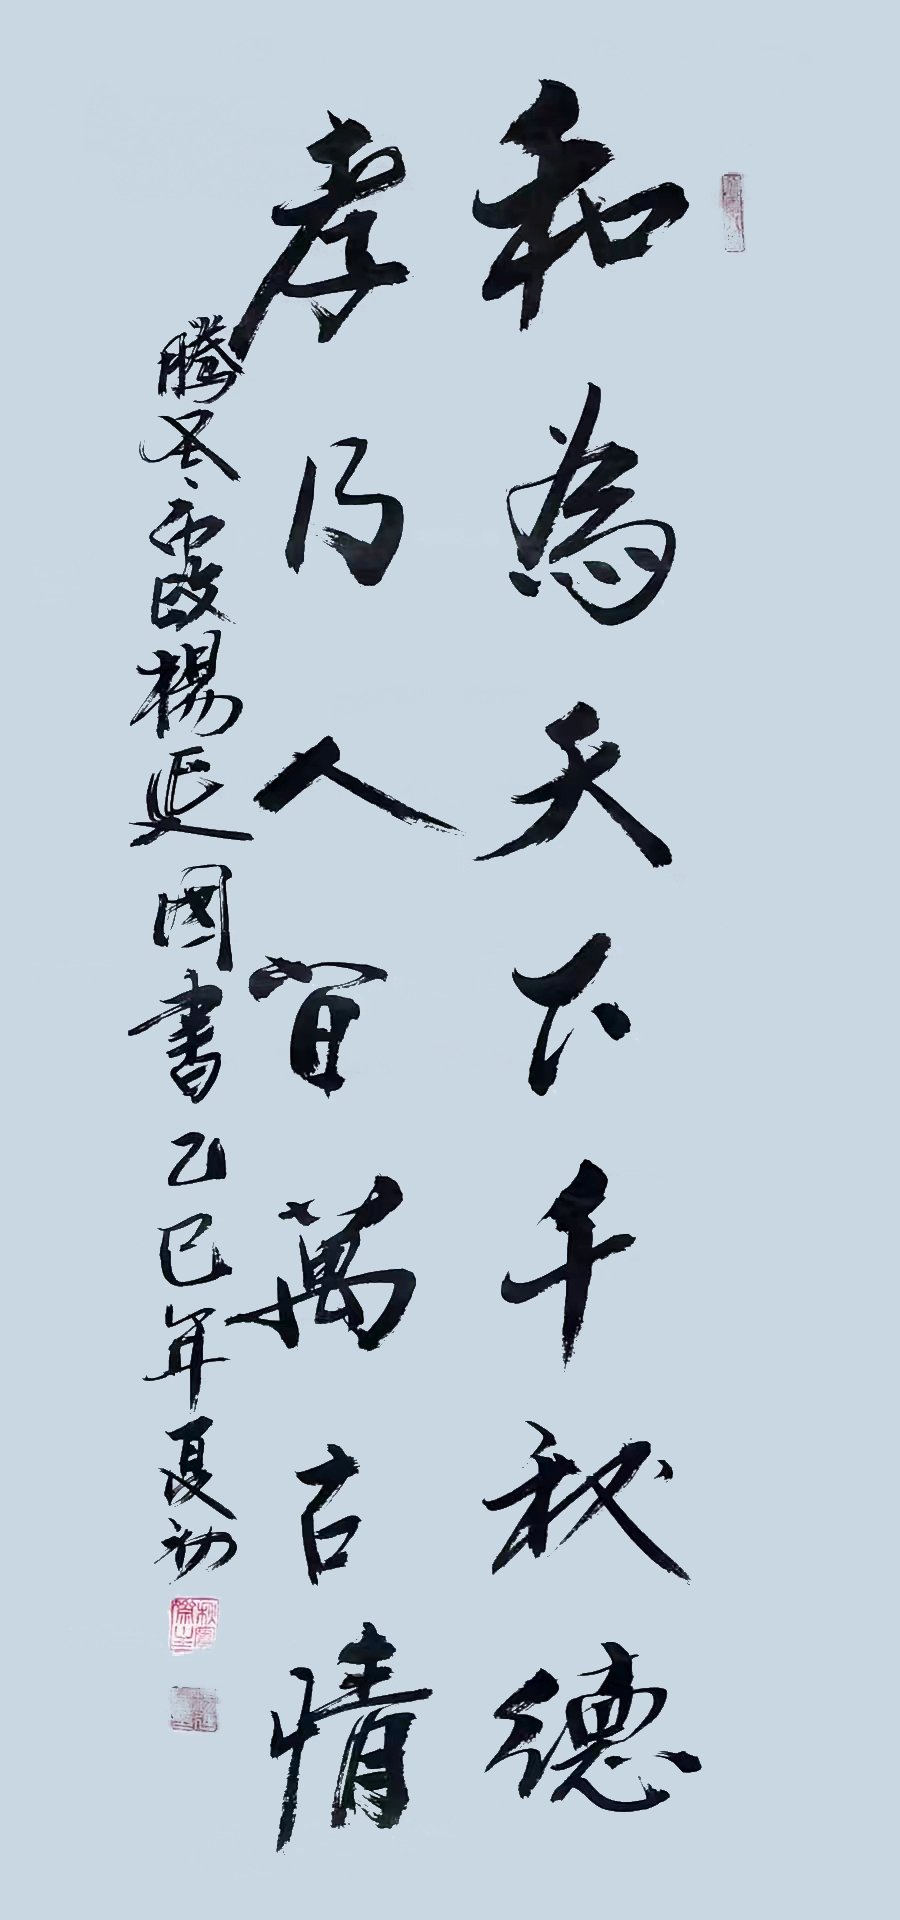 和為天下千秋德
孝乃人間萬古情
騰冬霞楊延國書乙巳年夏初